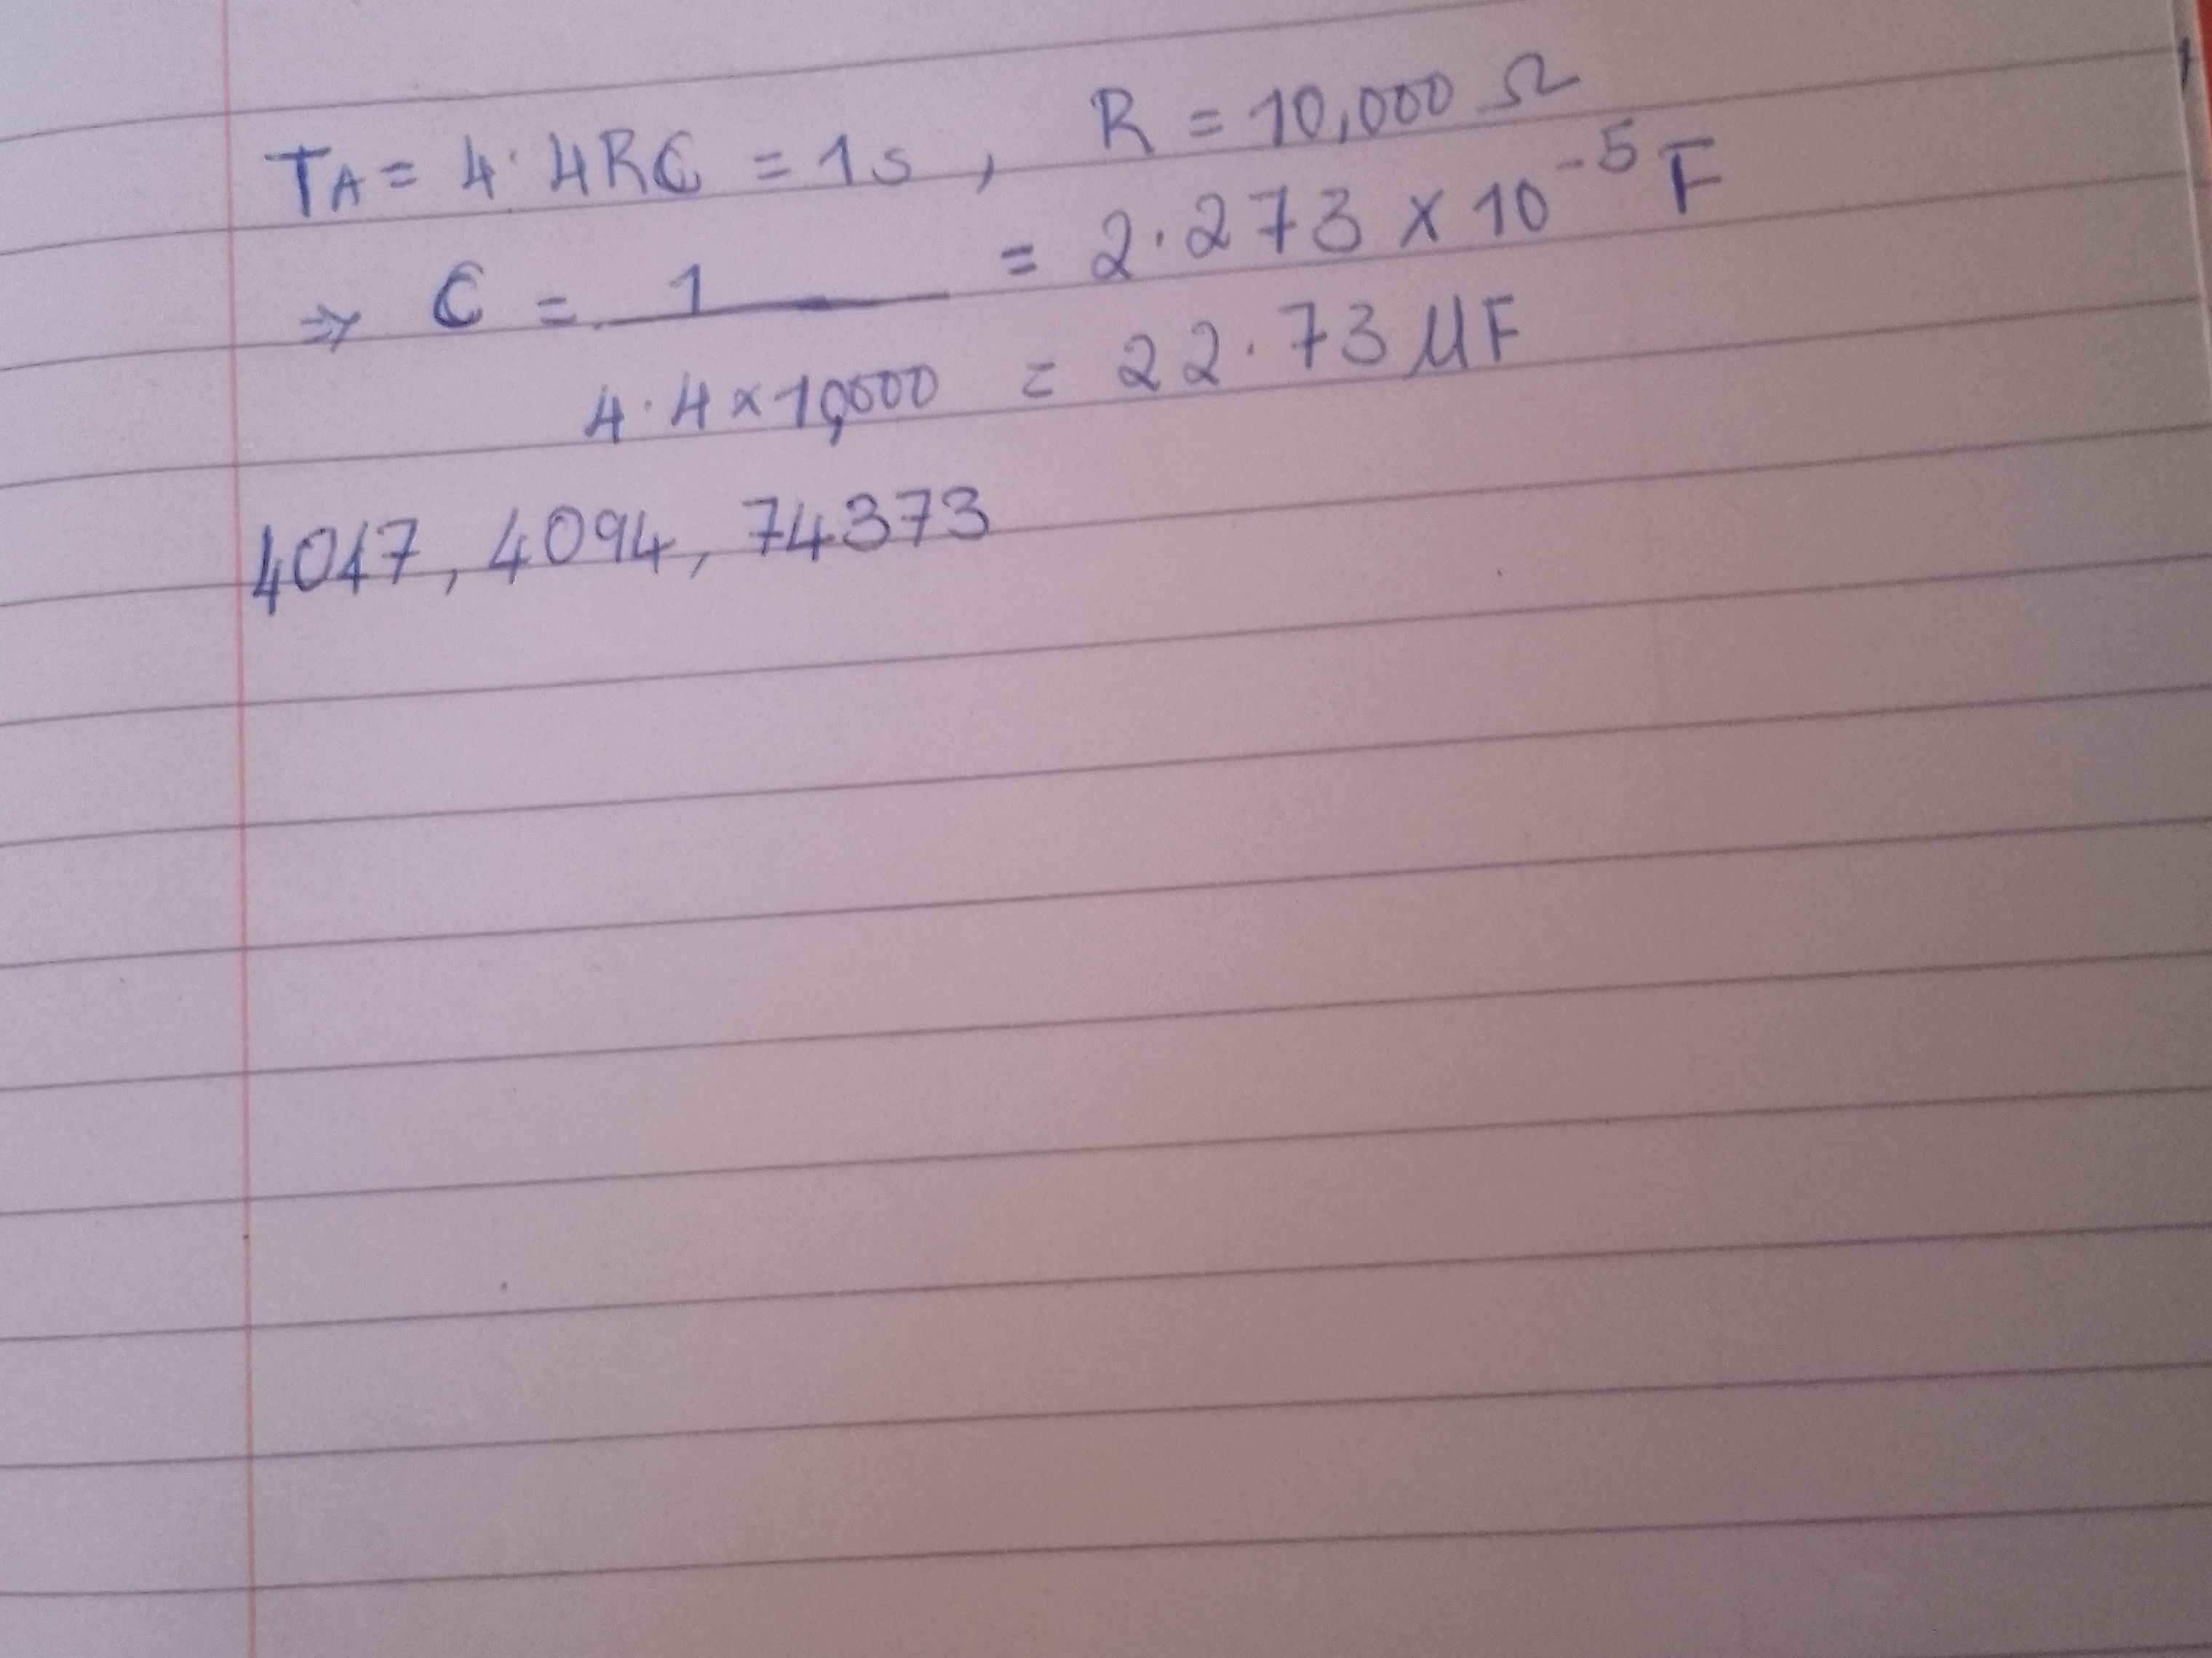 TA = 4.4RC = 1s , R = 10,000 Ω
⇒ C = 1 / 4.4 x 10,000 = 2.273 x 10⁻⁵ F
= 22.73 μF
4017, 4094, 74373